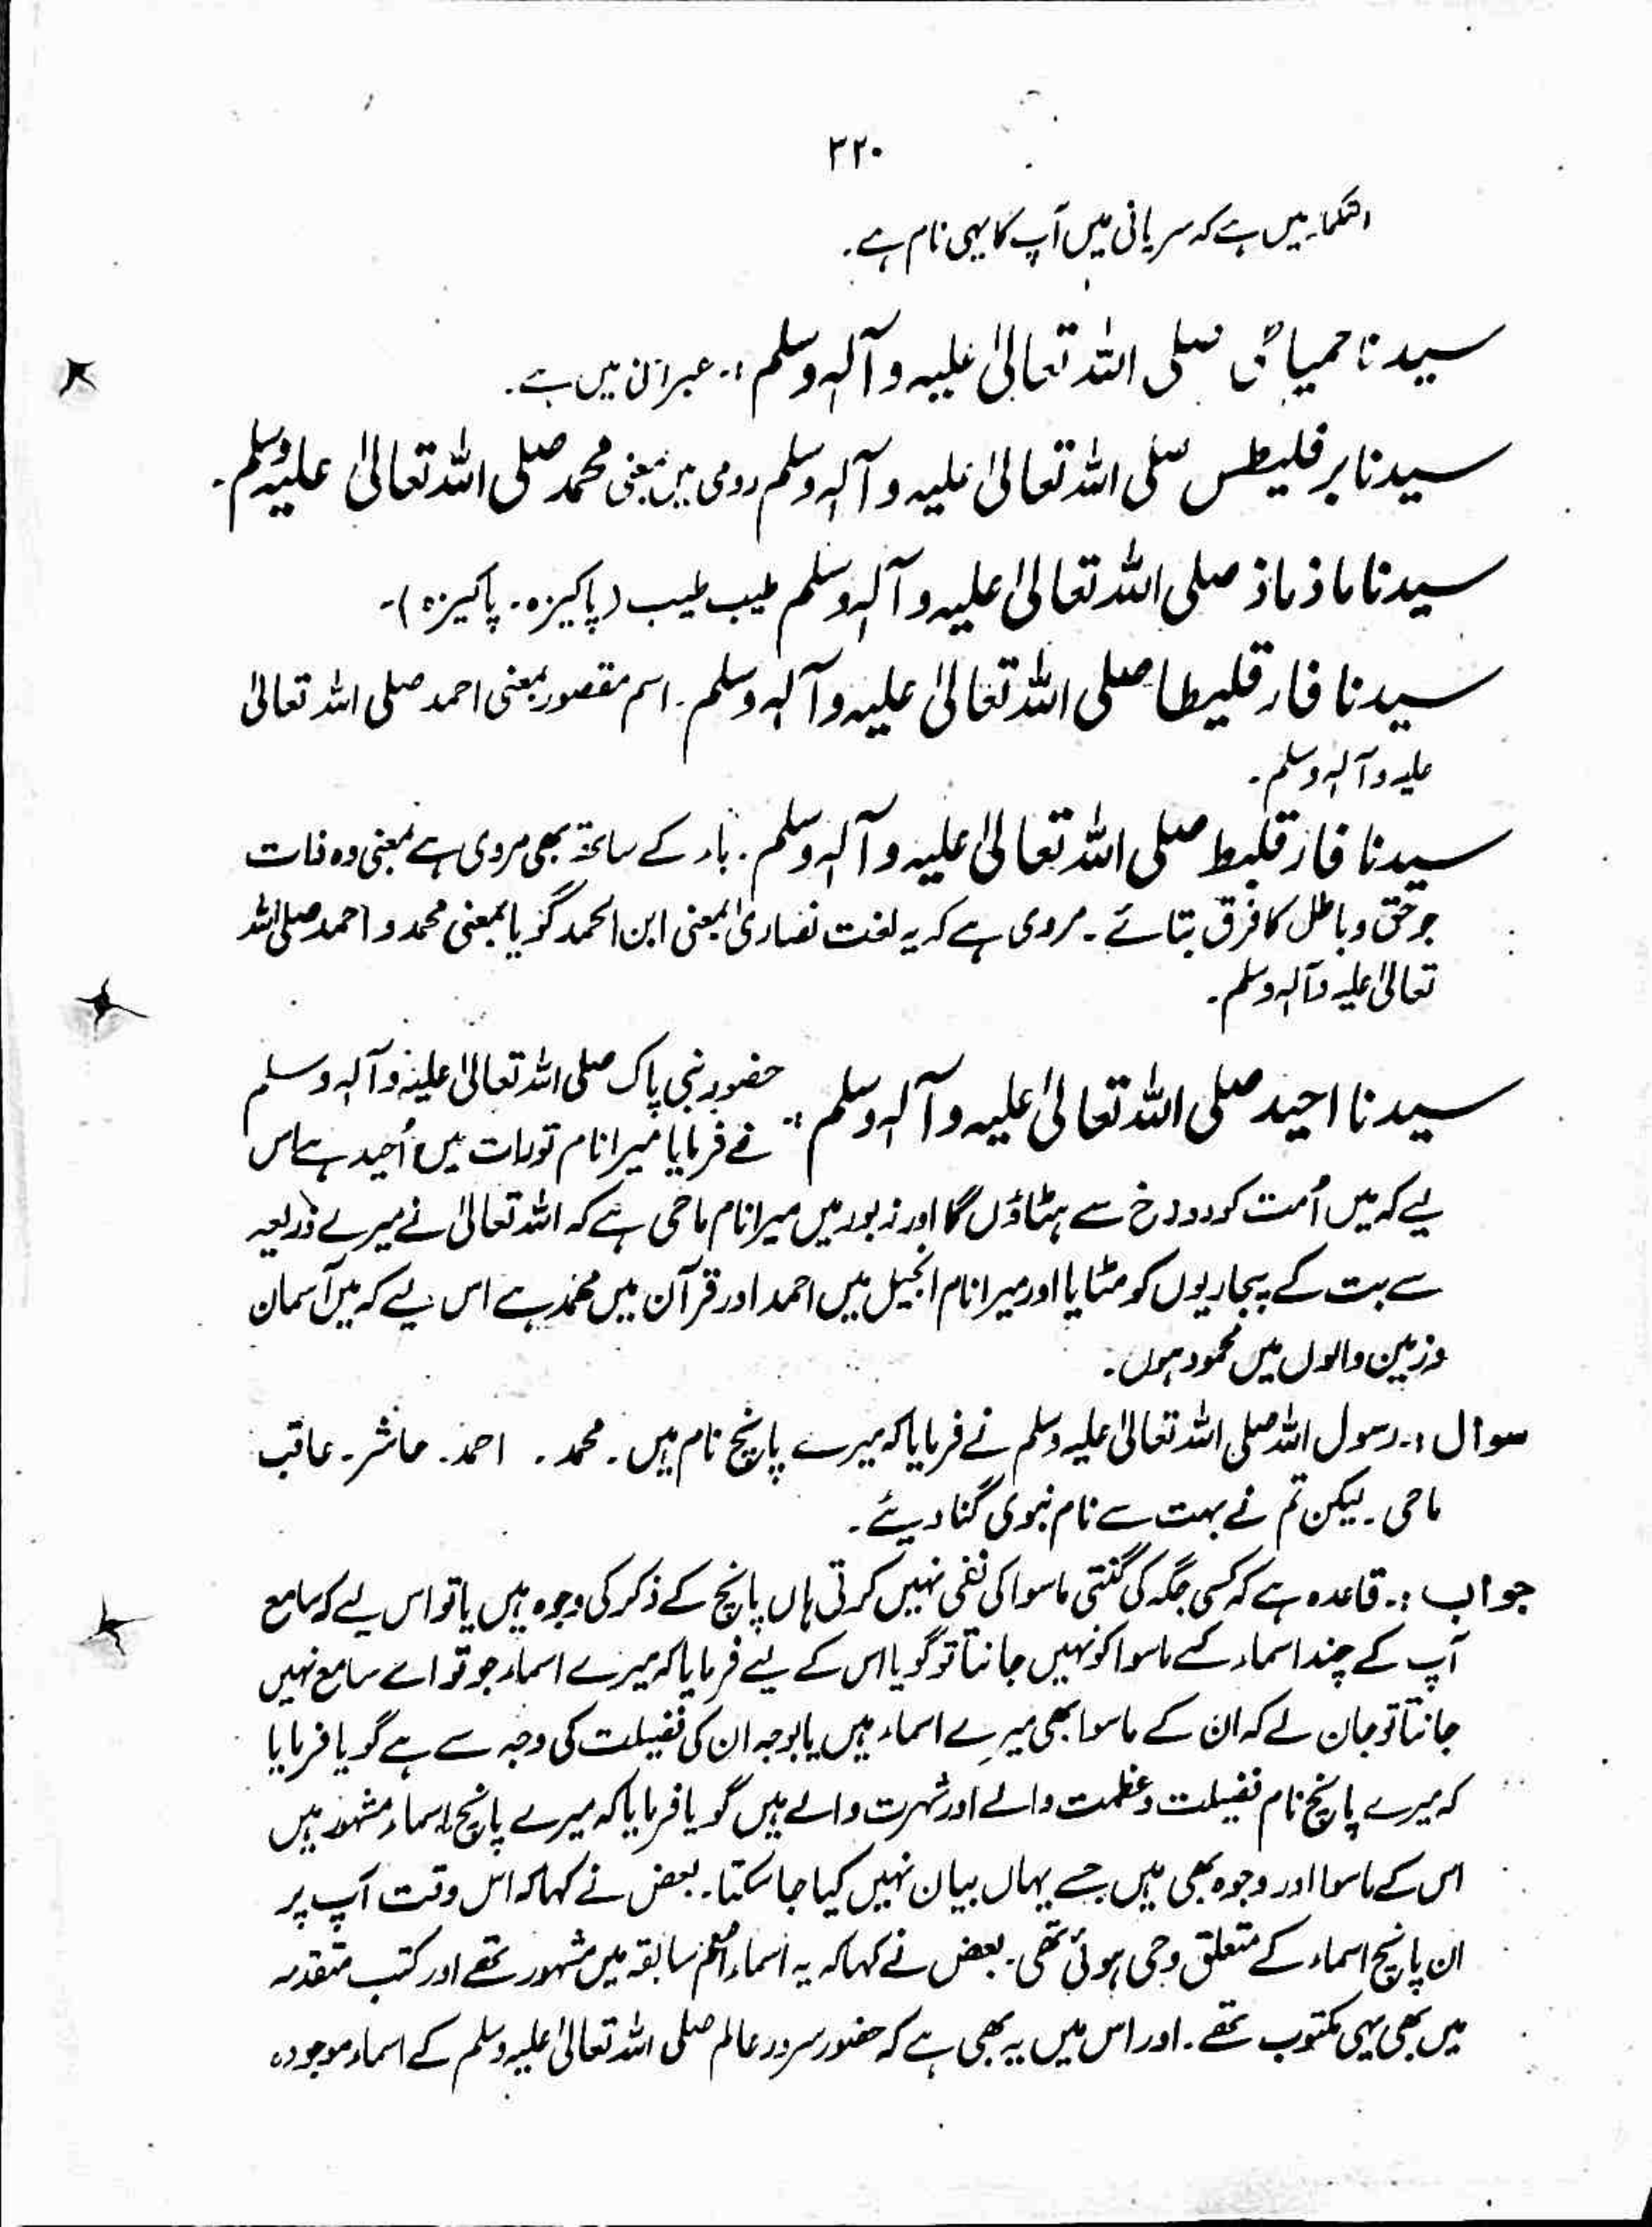 ۲۲۰
میں ہے کہ سریانی میں آپ کا یہی نام ہے۔
سیدنا حمیاطی صلی اللہ تعالیٰ علیہ وآلہٖ وسلم :۔ عبرانی میں ہے۔
سیدنا برقلیطس صلی اللہ تعالیٰ علیہ وآلہٖ وسلم رومی میں بمعنی محمد صلی اللہ تعالیٰ علیہ وسلم۔
سیدنا ماذ ماذ صلی اللہ تعالیٰ علیہ وآلہٖ وسلم طیب طیب (پاکیزہ۔ پاکیزہ)۔
سیدنا فارقلیطا صلی اللہ تعالیٰ علیہ وآلہٖ وسلم۔ اسم مقصور بمعنی احمد صلی اللہ تعالیٰ
علیہ وآلہٖ وسلم۔
سیدنا فارقلیط صلی اللہ تعالیٰ علیہ وآلہٖ وسلم۔ باء کے ساتھ بھی مروی ہے بمعنی وہ ذات
جو حق و باطل کا فرق بتائے۔ مروی ہے کہ یہ لغت نصاریٰ بمعنی ابن الحمد گویا بمعنی محمد و احمد صلی اللہ
تعالیٰ علیہ وآلہٖ وسلم۔
سیدنا احید صلی اللہ تعالیٰ علیہ وآلہٖ وسلم :۔ حضور نبی پاک صلی اللہ تعالیٰ علیہ وآلہٖ وسلم
نے فرمایا میرا نام تورات میں اُحید ہے اس
لیے کہ میں اُمت کو دوزخ سے ہٹاؤں گا اور زبور میں میرا نام ماحی ہے کہ اللہ تعالیٰ نے میرے ذریعہ
سے بت کے پجاریوں کو مٹایا اور میرا نام انجیل میں احمد اور قرآن میں محمد ہے اس لیے کہ میں آسمان
و زمین والوں میں محمود ہوں۔
سوال :۔ رسول اللہ صلی اللہ تعالیٰ علیہ وسلم نے فرمایا کہ میرے پانچ نام ہیں۔ محمد۔ احمد۔ حاشر۔ عاقب
ماحی۔ لیکن تم نے بہت سے نام نبوی گنا دیئے۔
جواب :۔ قاعدہ ہے کہ کسی جگہ کی گنتی ماسوا کی نفی نہیں کرتی ہاں پانچ کے ذکر کی وجوہ ہیں یا تو اس لیے کہ سامع
آپ کے چند اسماء کے ماسوا کو نہیں جانتا تو گویا اس کے لیے فرمایا کہ میرے اسماء جو تو اے سامع نہیں
جانتا تو جان لے کہ ان کے ماسوا بھی میرے اسماء ہیں یا بوجہ ان کی فضیلت کی وجہ سے ہے گویا فرمایا
کہ میرے پانچ نام فضیلت و عظمت والے اور شہرت والے ہیں گویا فرمایا کہ میرے پانچ اسماء مشہور ہیں
اس کے ماسوا اور وجوہ بھی ہیں جسے یہاں بیان نہیں کیا جا سکتا۔ بعض نے کہا کہ اس وقت آپ پر
ان پانچ اسماء کے متعلق وحی ہوئی تھی۔ بعض نے کہا کہ یہ اسماء امم سابقہ میں مشہور تھے اور کتب متقدمہ
میں بھی یہی مکتوب تھے۔ اور اس میں یہ بھی ہے کہ حضور سرور عالم صلی اللہ تعالیٰ علیہ وسلم کے اسماء موجودہ